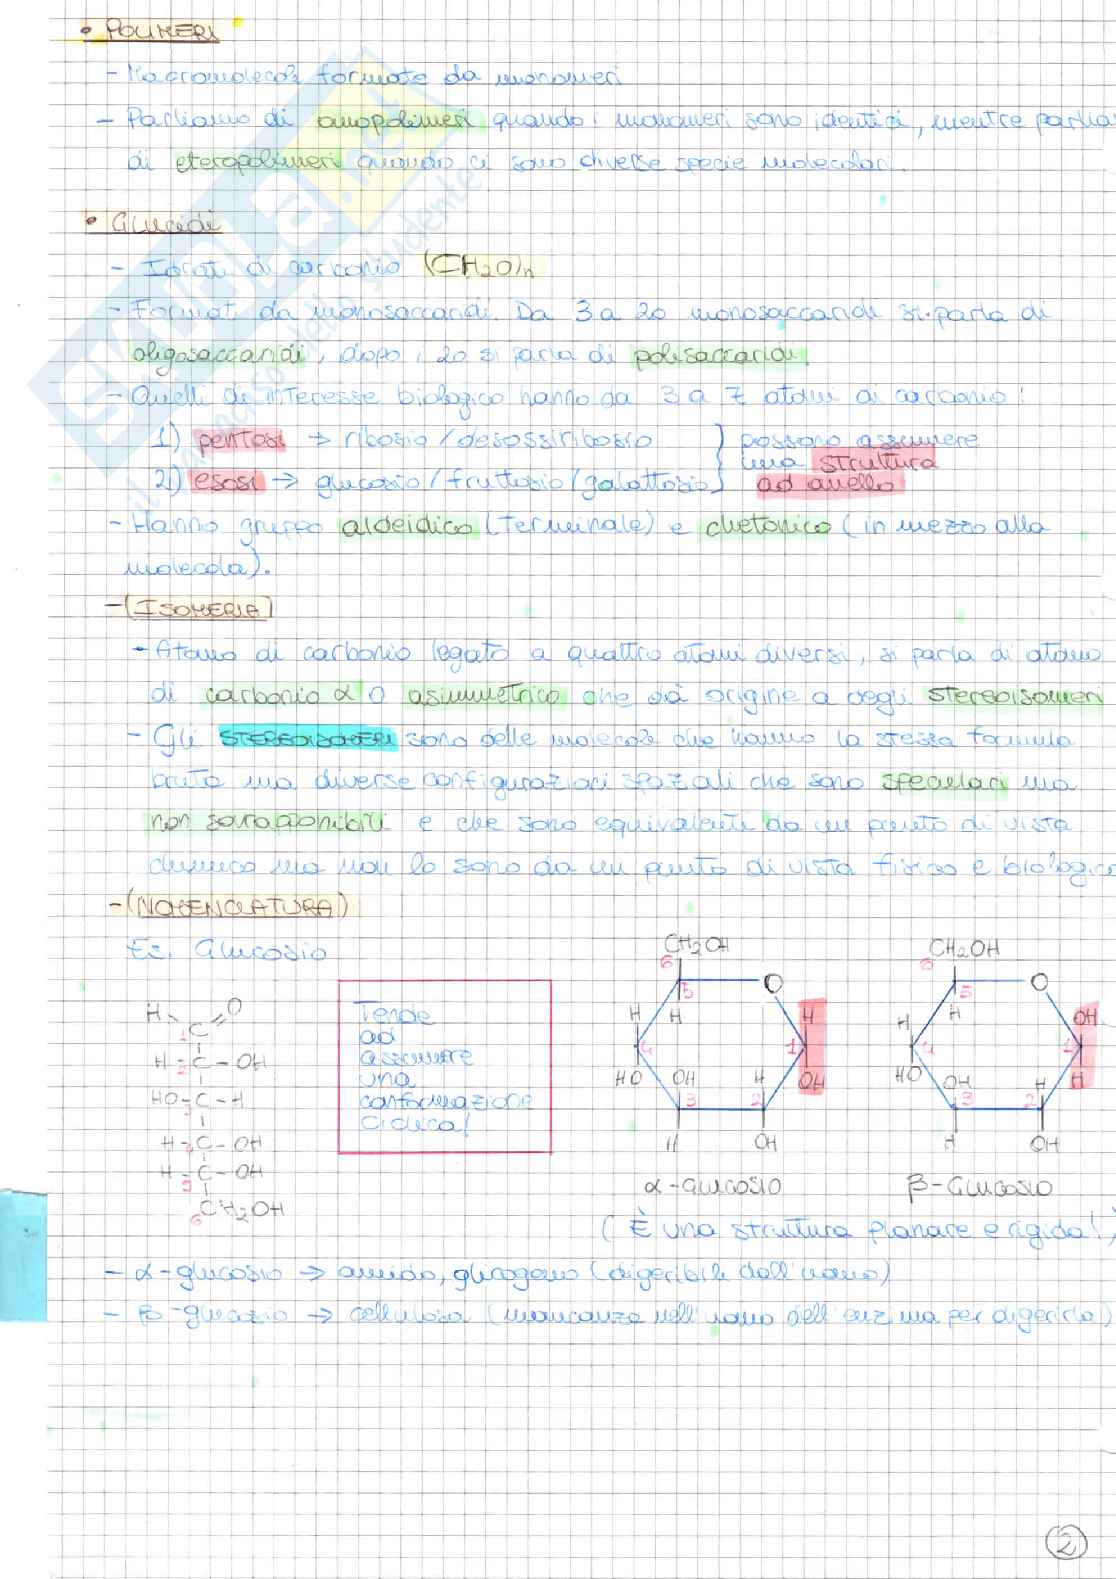 • POLIMERI
- Macromolecole formate da monomeri
- Parliamo di omopolimeri quando i monomeri sono identici, mentre parlia
di eteropolimeri quando ci sono diverse specie molecolari.
• Glucidi
- Idrati di carbonio (CH2O)n
- Formati da monosaccaridi. Da 3 a 20 monosaccaridi si parla di
oligosaccaridi, dopo i 20 si parla di polisaccaridi.
- Quelli di interesse biologico hanno da 3 a 7 atomi di carbonio:
1) pentosi → ribosio/desossiribosio } possono assumere
una struttura
2) esosi → glucosio/fruttosio/galattosio } ad anello
- Hanno gruppo aldeidico (terminale) e chetonico (in mezzo alla
molecola).
- (ISOMERIA)
- Atomo di carbonio legato a quattro atomi diversi, si parla di atomo
di carbonio α o asimmetrico che dà origine a degli stereoisomeri
- Gli STEREOISOMERI sono delle molecole che hanno la stessa formula
bruta ma diverse configurazioni spaziali che sono speculari ma
non sovrapponibili e che sono equivalenti da un punto di vista
chimico ma non lo sono da un punto di vista fisico e biologico
- (NOMENCLATURA)
Es. Glucosio
H O
1 C
H - 2 C - OH
HO - 3 C - H
H - 4 C - OH
H - 5 C - OH
6 CH2OH
Tende
ad
assumere
una
conformazione
ciclica!
CH2OH
6
5 O
H H H
4 1
HO OH H OH
3 2
H OH
α-GLUCOSIO
CH2OH
6
5 O
H H OH
4 1
HO OH H H
3 2
H OH
β-GLUCOSIO
(È una struttura planare e rigida!)
- α-glucosio → amido, glicogeno (digeribile dall'uomo)
- β-glucosio → cellulosa (mancanza nell'uomo dell'enzima per digerirla)
2
SKUOLA.net
il paradiso dello studente